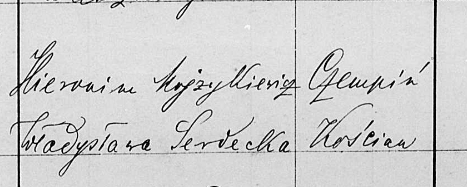 Hieronim Mojzykiewicz Czempiń
Władysława Serdecka Kościan